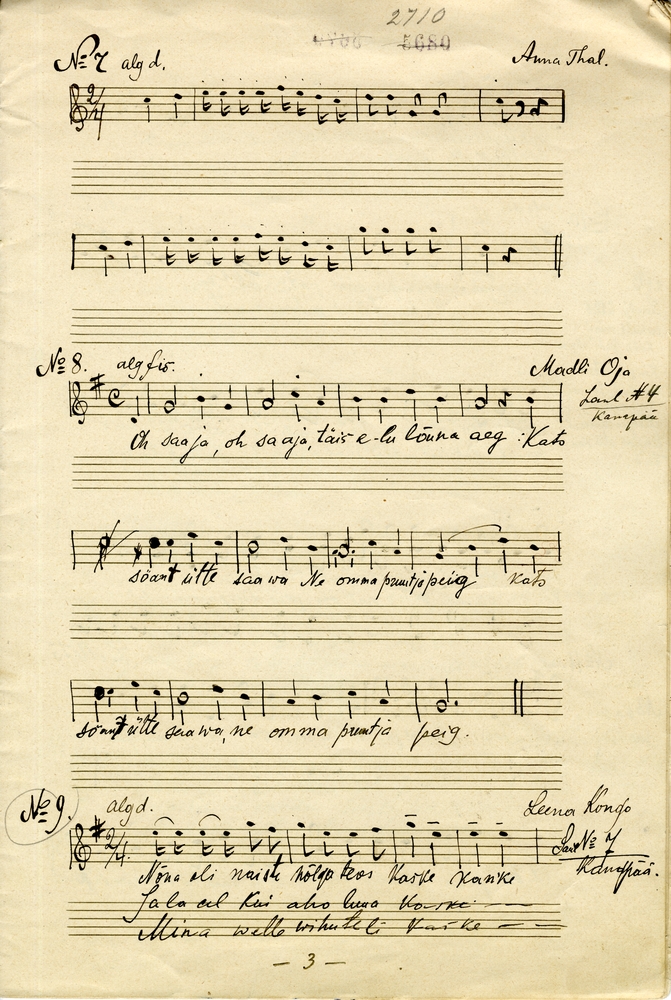 2710
5680
№ 7 alg d. Anna Thal.
2/4
№ 8. alg fis. Madli Oja
Laul № 4
Kanepää
Oh saaja, oh saaja, täis e-lu lõuna aeg : Kats
söant ütte saawa Ne omma pruutja peig kats
söant ütte saawa, ne omma pruutja peig.
№ 9. alg d. Leena Kongo
2/4
Laul № 7
Kanepää.
Nõna oli naiste kaske kaske
Jala al kui aho luua kaske
Mina welle wihuteli kaske
— 3 —